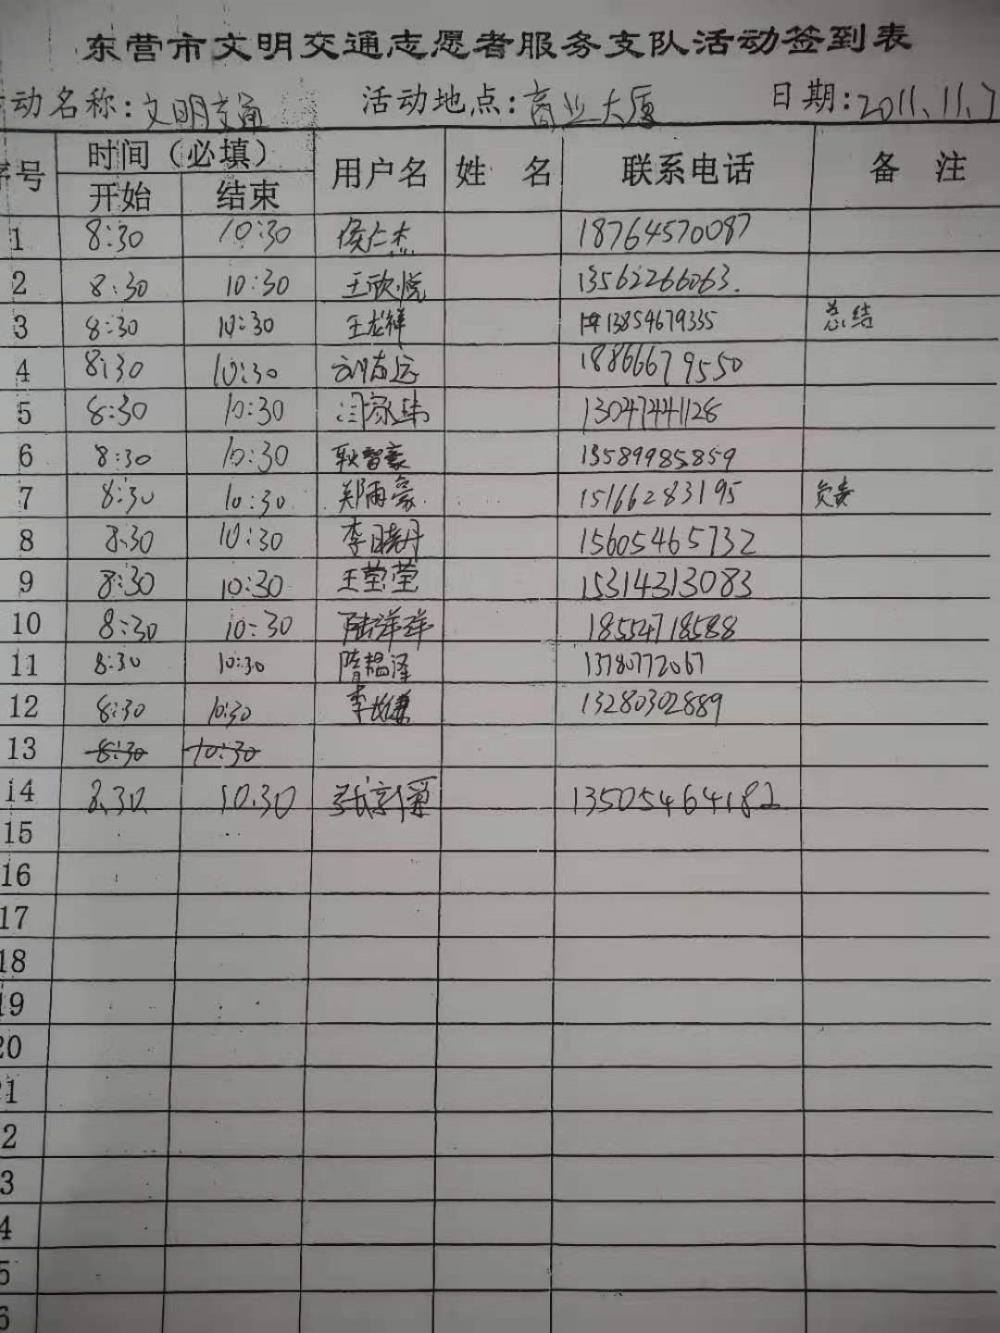 东营市文明交通志愿者服务支队活动签到表
动名称:文明交通 活动地点:商业大厦 日期:2011.11.7
序号 时间（必填） 用户名 姓 名 联系电话 备 注
开始 结束
1 8:30 10:30 侯仁杰 18764570087
2 8:30 10:30 王欣悦 13562266063.
3 8:30 10:30 王龙祥 13854679335 总结
4 8:30 10:30 刘志远 18866679550
5 8:30 10:30 闫家 13047441128
6 8:30 10:30 耿智豪 13589985859
7 8:30 10:30 郑雨豪 15166283195 负责
8 8.30 10:30 李晓丹 15605465732
9 8:30 10:30 王莹莹 15314313083
10 8:30 10:30 陆洋洋 18554718588
11 8:30 10:30 隋韫泽 13780772067
12 8:30 10:30 李 13280302889
13 8:30 10:30
14 8.30 10.30 张 13505464182
15
16
17
18
19
20
21
2
3
4
5
6